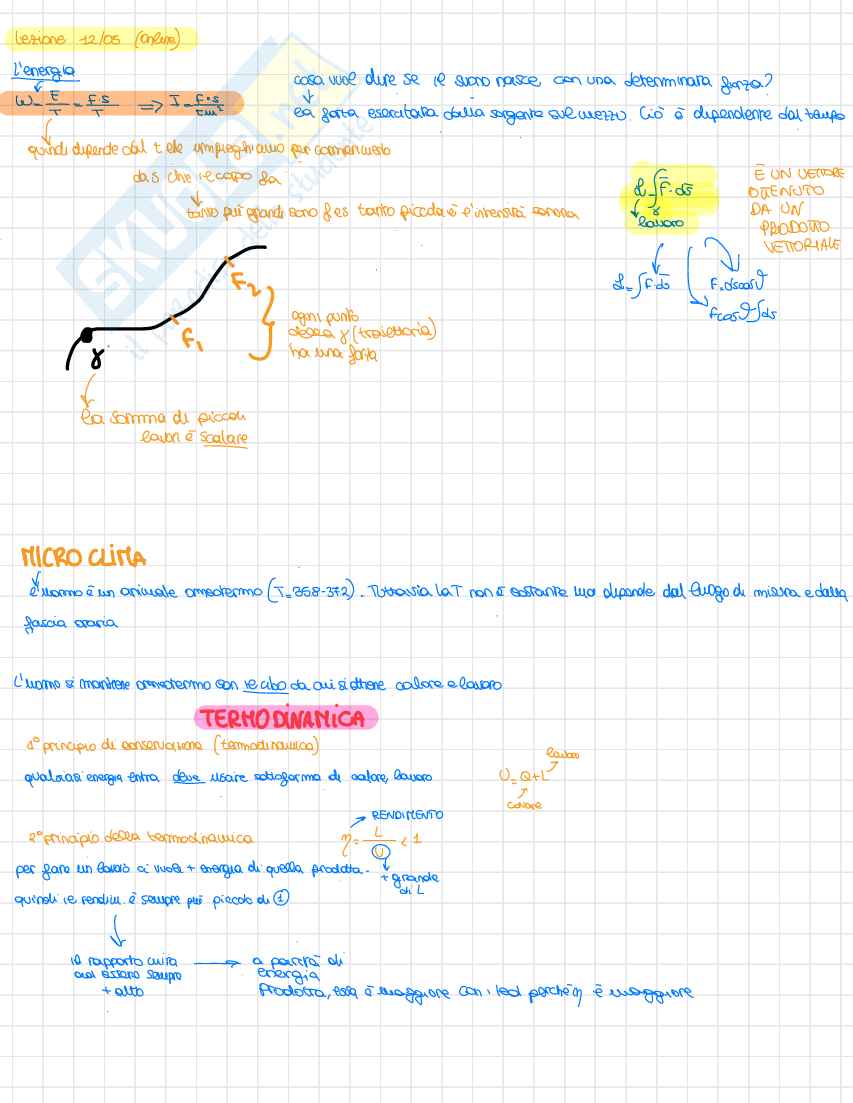 Lezione 12/05 (online)
L'energia
W = E/T = F·S/T => I = F·s/T·m²
cosa vuol dire se il suono nasce con una determinata forza?
la forza esercitata dalla sorgente sul mezzo. Ciò è dipendente dal tempo
quindi dipende dal t che impieghiamo per
da s che il corpo fa
tanto più grandi sono f e s tanto piccola è l'intensità sonora
L = ∫γ F̄·ds̄
lavoro
È UN VETTORE
OTTENUTO
DA UN
PRODOTTO
VETTORIALE
L = ∫F·ds̄
F·dscosϑ
Fcosϑ∫ds
F₂
F₁
γ
ogni punto
della γ (traiettoria)
ha una forza
la somma di piccoli
lavori è scalare
MICROCLIMA
l'uomo è un animale omeotermo (T=36.8-37.2). Tuttavia la T non è costante ma dipende dal luogo di misura e dalla
fascia oraria
L'uomo si mantiene omeotermo con il cibo da cui si ottiene calore e lavoro
TERMODINAMICA
1° principio di conservazione (termodinamica)
qualsiasi energia entra deve uscire sottoforma di calore, lavoro
U = Q + L
lavoro
calore
2° principio della termodinamica
η = L/U < 1
RENDIMENTO
+ grande
di L
per fare un lavoro ci vuole + energia di quella prodotta.
quindi il rendim. è sempre più piccolo di 1
il rapporto mira
ad essere sempre
+ alto
a parità di
energia
prodotta, essa è maggiore con i led perché η è maggiore
SKUOLA.net
il paradiso dello studente